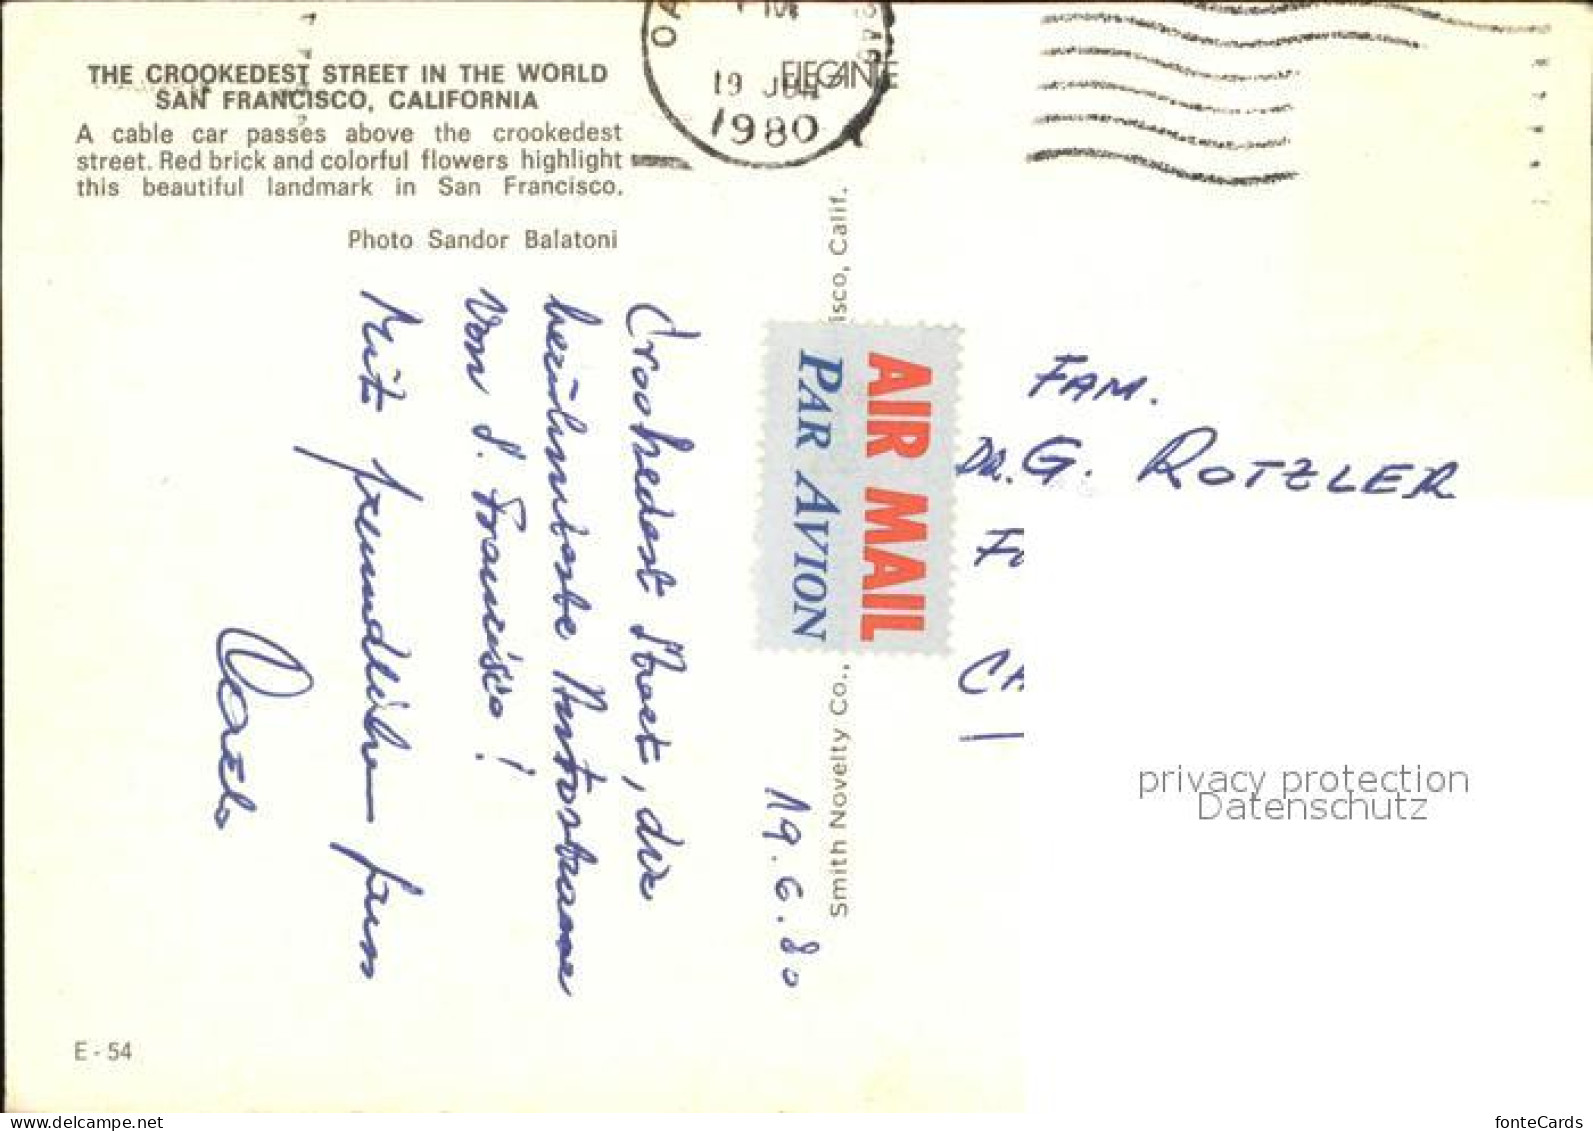 THE CROOKEDEST STREET IN THE WORLD
SAN FRANCISCO, CALIFORNIA
A cable car passes above the crookedest
street. Red brick and colorful flowers highlight
this beautiful landmark in San Francisco.
Photo Sandor Balatoni
19 JUN
1980
ELEGANTE
19.6.80
Crookedest Street, die
berühmteste Autostrasse
von S. Francisco!
Mit freundlichem Gruss
AIR MAIL
PAR AVION
Smith Novelty Co., isco, Calif.
FAM.
DR. G. ROTZLER
CH
privacy protection
Datenschutz
E - 54
www.delcampe.net
fonteCards